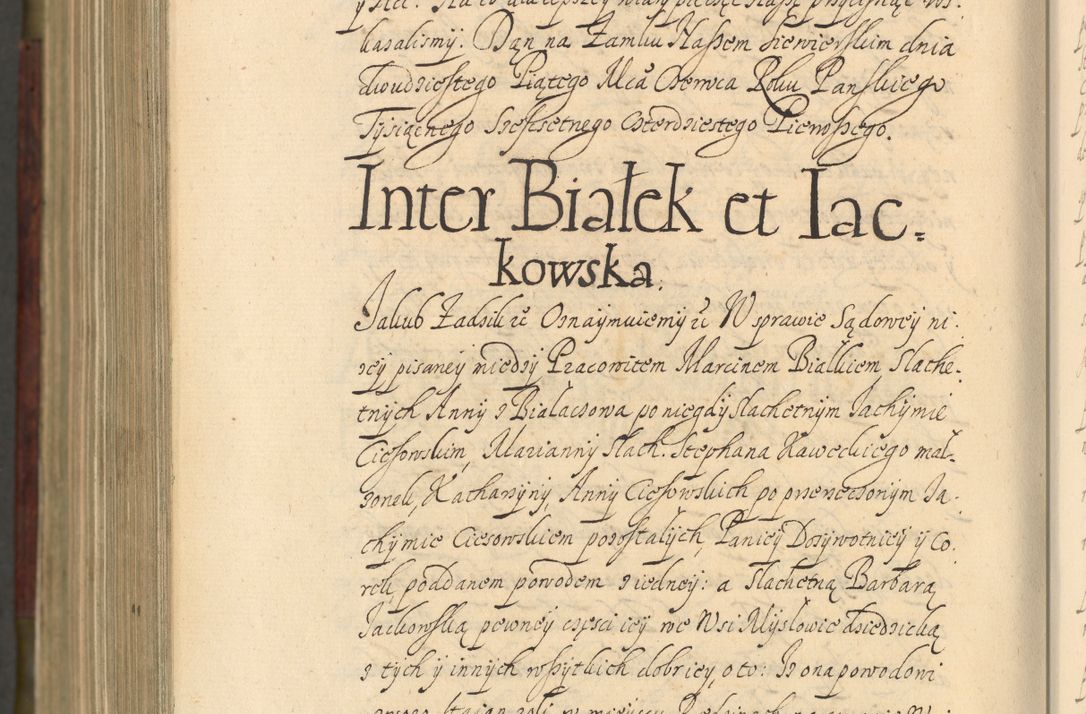 kazalismÿ. Dąn na Zamku Naßem Siewierskim dnia
dwudziestego Piątego Mca Czerwca Roku Panskiego
Tÿsiącnego Szesćsetnego Czterdziestego Pierwßego.
Inter Białek et Iac=
kowska.
Jakub Zadzik etc Oznaÿmuiemÿ etc W sprawie Sądoweÿ ni.
zeÿ pisaneÿ międzÿ Pracowitem Marcinem Białkiem Slache.
tnÿch Annÿ z Bialaczowa po niegdÿ slachetnÿm Jachÿmie
Cießowskim, Mariannÿ Slach. Stephana Kaweckiego mal=
zonki, Katharzÿnÿ, Annÿ Cießowskich po przerzeczonÿm Ja.
chÿmie Ciesowskiem pozostałÿch, Panieÿ Dozÿwotnieÿ ÿ Co.
rek, poddanem powodem z iedneÿ: a slachetną Barbarą
Jackowską pewneÿ częsci ieÿ we Wsi Mÿslowie dziedzicką
z tÿch ÿ innÿch wßÿtkich dobr ieÿ, o to: Iz ona powodowi